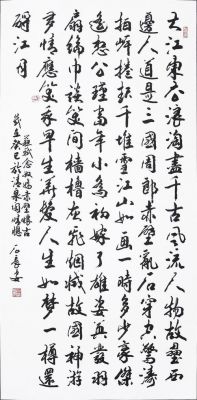 大江東去浪淘盡千古風流人物故壘西
邊人道是三國周郎赤壁亂石穿空驚濤
拍岸捲起千堆雪江山如畫一時多少豪傑
遙想公瑾當年小喬初嫁了雄姿英發羽
扇綸巾談笑間檣櫓灰飛煙滅故國神游
多情應笑我早生華髮人生如夢一樽還
酹江月
蘇軾念奴嬌赤壁懷古
歲在癸巳於清泉園